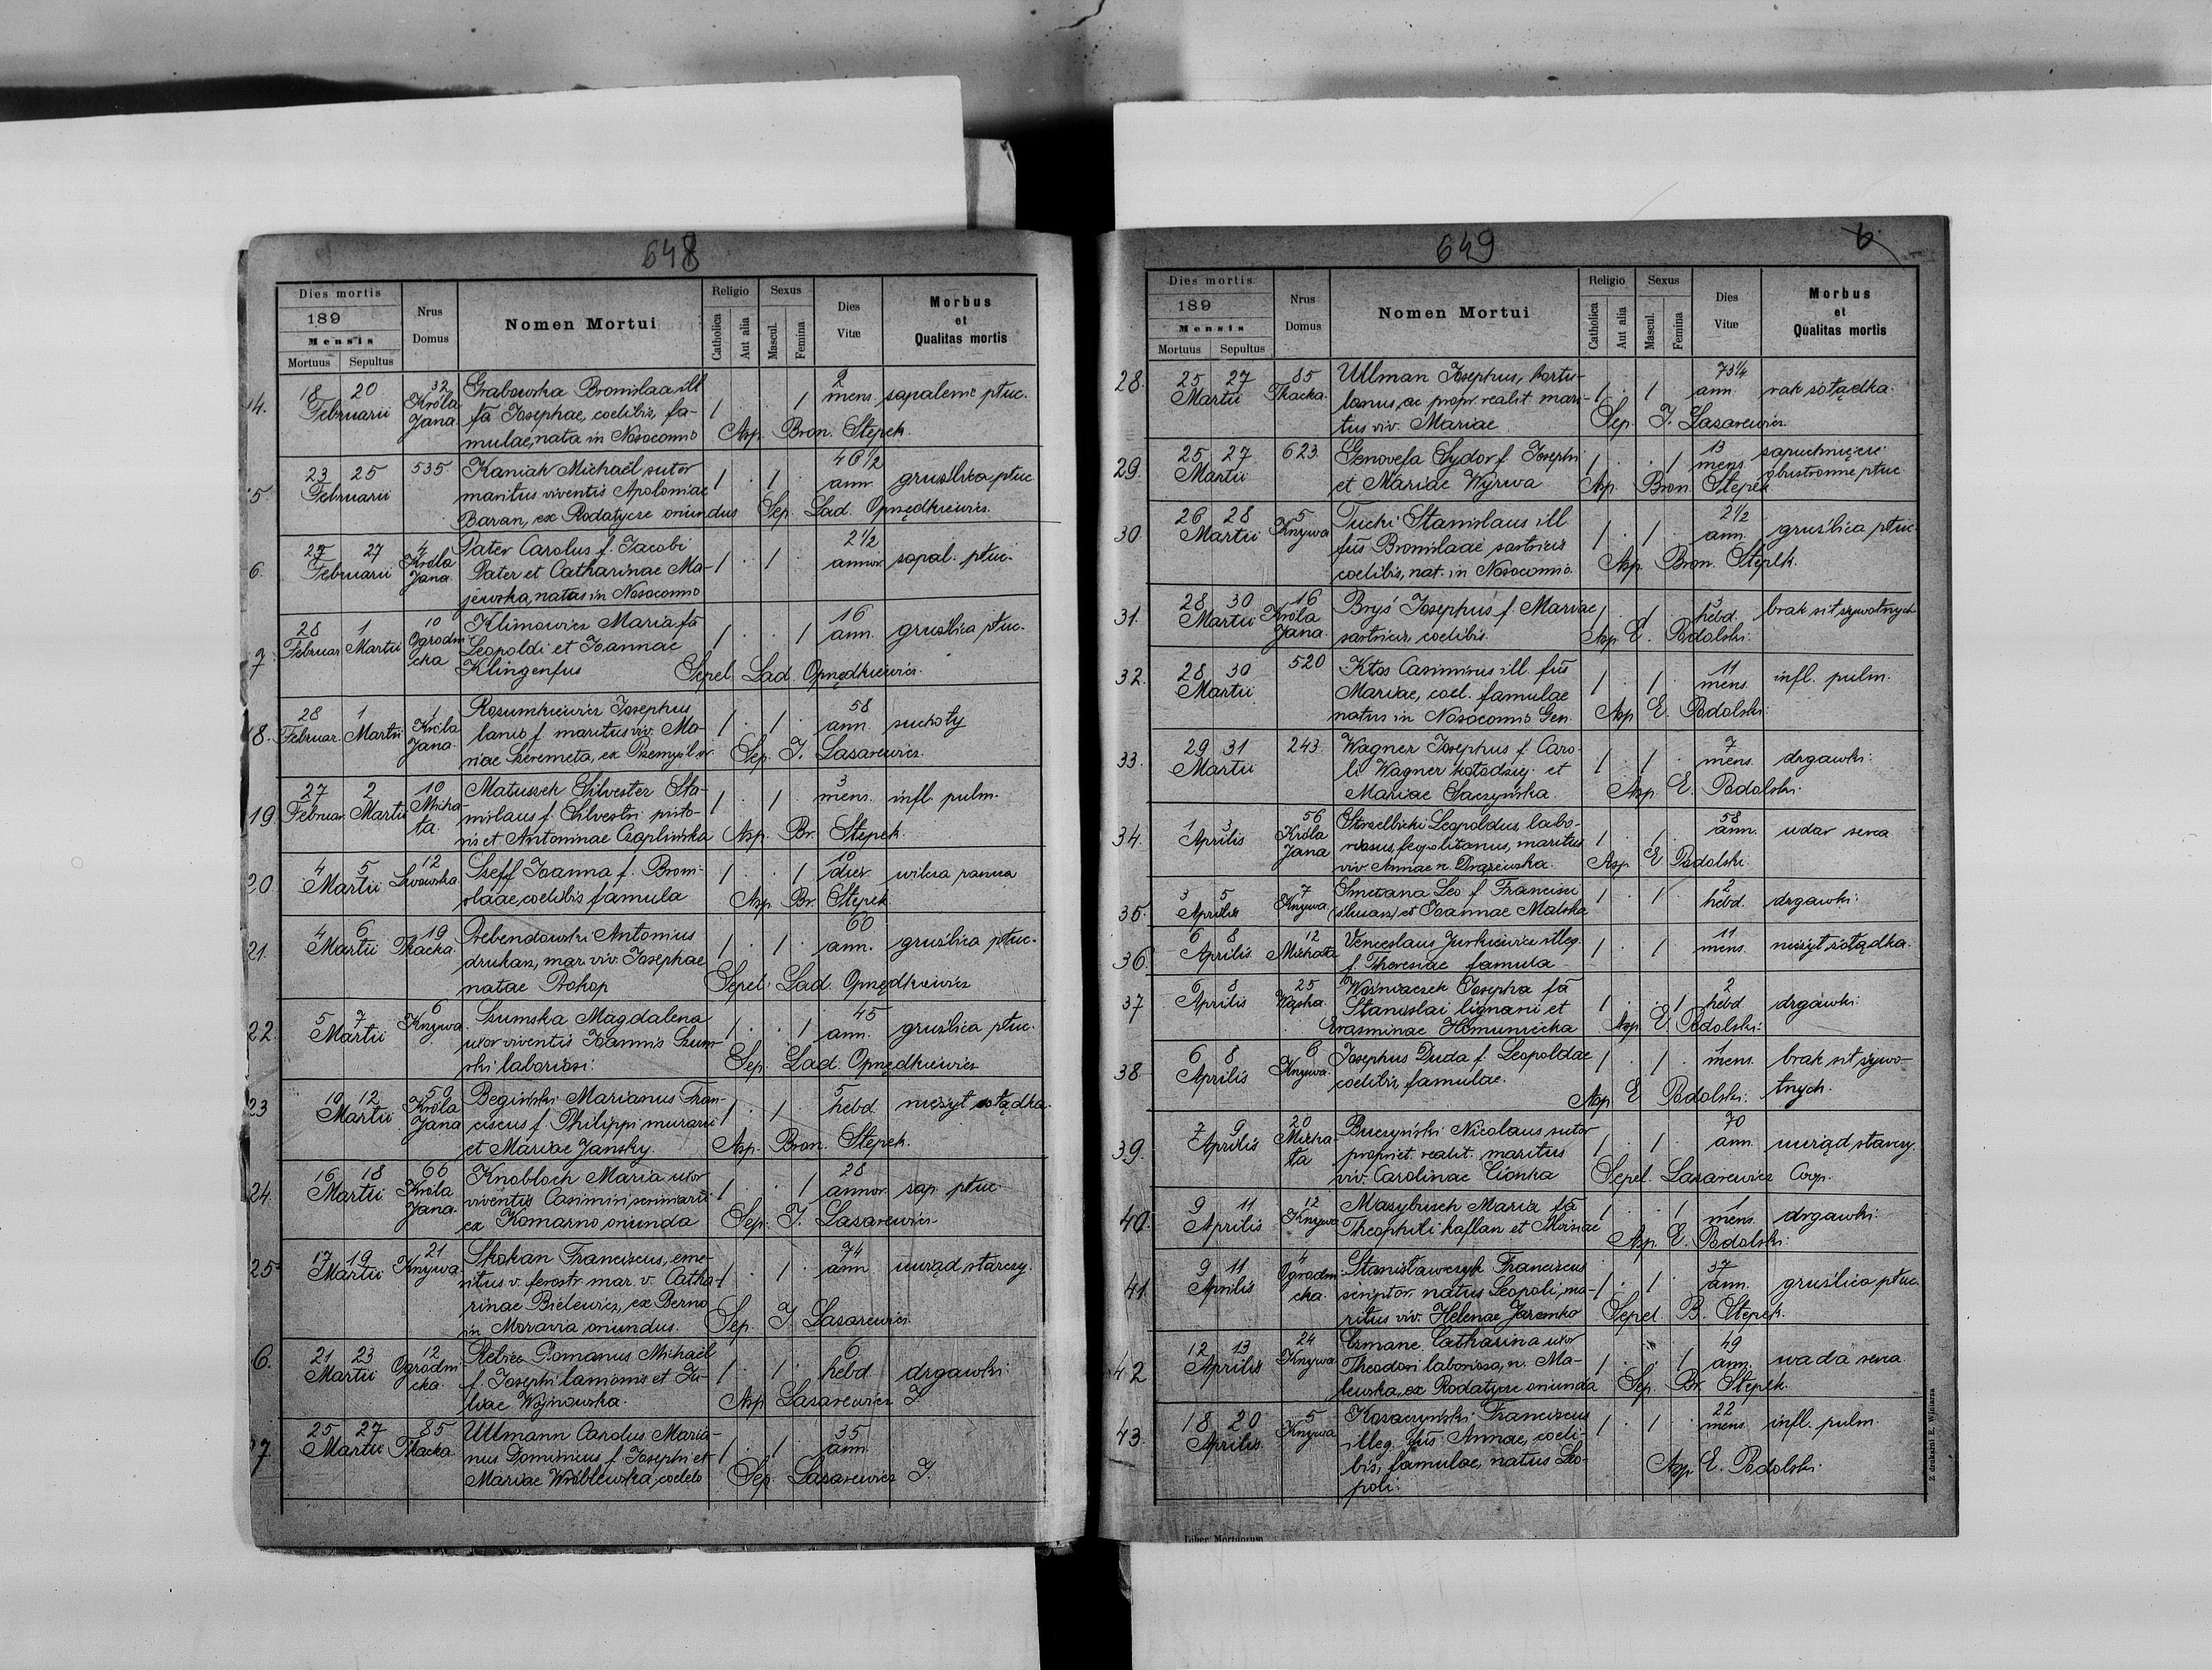 648
Dies mortis
189
Mensis
Mortuus Sepultus
Nrus
Domus
Nomen Mortui
Religio
Catholica
Aut alia
Sexus
Mascul.
Femina
Dies
Vitæ
Morbus
et
Qualitas mortis
14. 18 20 Februarii 32 Króla Jana
Grabowska Bronislaa ill
fa Josephae, coelibis, fa-
mulae, nata in Nosocomio
1 . . 1 2 mens. zapalenie płuc.
Asp. Bron. Stepek.
15. 23 25 Februarii 535
Kaniak Michaël sutor
maritus viventis Apoloniae
Baran, ex Rodatycze oriundus
1 . 1 . 46 1/2 ann. gruźlica płuc
Sep. Lad. Opuędkiewicz.
6. 25 27 Februarii 4 Króla Jana
Pater Carolus f. Jacobi
Pater et Catharinae Ma-
jewska, natus in Nosocomio
1 . 1 . 2 1/2 annor. zapal. płuc.
7. 28 Februar. 1 Martii 10 Ogrodni cka
Klimowicz Maria fa
Leopoldi et Joannae
Klingenfus
1 . . 1 16 ann. gruźlica płuc.
Sepel. Lad. Opuędkiewicz.
18. 28 Februar. 1 Martii 1 Króla Jana
Rozumkiewicz Josephus
lanio f. maritus viv. Ma-
riae Szeremeta, ex Przemyśl or
1 . 1 . 58 ann. suchoty
Sep. J. Lazarewicz.
19. 27 Februar. 2 Martii 10 Micha- ła
Matuszek Silvester Sta-
nislaus f. Silvestri pisto-
ris et Antoninae Czaplinska
1 . 1 . 3 mens. infl. pulm.
Asp. Br. Stepek.
20. 4 5 Martii 12 Lwowska
Szeff Joanna f. Broni-
slaae, coelibis famula
1 . . 1 10 dier.
Asp. Br. Stepek
21. 4 6 Martii 19 Tkacka
Prebendowski Antonius
drukarz, mar. viv. Josephae
natae Prokop
1 . 1 . 60 ann. gruźlica płuc.
Sepel. Lad. Opuędkiewicz
22. 5 7 Martii 6 Krzywa
Szumska Magdalena
uxor viventis Joannis Szum-
ski laboriosi.
1 . . 1 45 ann. gruźlica płuc.
Sep. Lad. Opuędkiewicz
23 10 12 Martii 50 Króla Jana
Begiński Marianus Fran-
ciscus f. Philippi murarii
et Mariae Jansky.
1 . 1 . 5 hebd. nieżyt żołądka.
Asp. Bron. Stepek.
24. 16 18 Martii 66 Króla Jana
Knobloch Maria uxor
viventis Casimiri seriniarii
ex Komarno oriunda
1 . . 1 28 annor. zap. płuc.
Sep. J. Lazarewicz
25 17 19 Martii 21 Krzywa
Skokan Franciscus, eme-
ritus v. ferostr. mar. v. Catha-
rinae Bielewicz, ex Berno
in Moravia oriundus.
1 . 1 . 74 ann uwiąd starczy.
Sep. J. Lazarewicz
6. 21 23 Martii 12 Ogrodni cka.
Rebiec Romanus Michaël
f. Josephi lanionis et Ju-
liae Wojnowska.
1 . 1 . 6 hebd drgawki.
Asp. Lazarewicz J.
7. 25 27 Martii 85 Tkacka
Ullmann Carolus Maria-
nus Dominicus f. Josephi et
Mariae Wróblewska, coelebs
1 . 1 . 35 ann.
Sep. Lazarewicz J.
649
6.
Dies mortis
189
Mensis
Mortuus Sepultus
Nrus
Domus
Nomen Mortui
Religio
Catholica
Aut alia
Sexus
Mascul.
Femina
Dies
Vitæ
Morbus
et
Qualitas mortis
28. 25 27 Martii 85 Tkacka.
Ullman Josephus, hortu-
lanus, ac propr. realit. mari-
tus viv. Mariae
1 . 1 . 73 1/4 ann. rak żołądka.
Sep. J. Lazarewicz
29. 25 27 Martii 623.
Genovefa Sydor f. Josephi
et Mariae Wyrwa
1 . . 1 13 mens.
obustronne płuc
Asp. Bron. Stepek.
30. 26 28 Martii 5 Krzywa
Tucki Stanislaus ill
fus Bronislaae sartricis
coelibis, nat. in Nosocomio.
1 . 1 . 2 1/2 ann. gruźlica płuc.
Asp. Bron. Stepek.
31. 28 30 Martii 16 Króla Jana
Bryś Josephus f. Mariae
sartricis, coelibis.
1 . 1 . 3 hebd. brak sił żywotnych
Asp. E. Podolski.
32. 28 30 Martii 520
Kłos Casimirus ill. fus
Mariae, coel. famulae
natus in Nosocomio Gen.
1 . 1 . 11 mens. infl. pulm.
Asp E. Podolski.
33. 29 31 Martii 243.
Wagner Josephus f. Caro-
li Wagner kołodziej et
Mariae Saczyńska.
1 . 1 . 7 mens. drgawki.
Asp. E. Podolski.
34. 1 3 Aprilis 56 Króla Jana
Strzelbicki Leopoldus, labo-
riosus, leopolitanus, maritus
viv. Annae n. Drązewska.
1 . 1 . 58 ann. udar serca
Asp. E. Podolski.
35. 3 5 Aprilis 7 Krzywa.
Smetana Leo f. Francisci
(ślusarz) et Joannae Malska
1 . 1 . 2 hebd. drgawki.
36. 6 8 Aprilis 12 Michała
Venceslaus Jurkiewicz illeg.
f. Theresiae famula
1 . 1 . 11 mens. nieżyt żołądka.
37 6 8 Aprilis 25 Wązka.
Woźniaczek Josepha fa
Stanislai lignarii et
Erasminae Homunicka
1 . . 1 2 hebd drgawki.
Asp. E. Podolski.
38 6 8 Aprilis 6 Krzywa.
Josephus Duda f. Leopoldae
coelibis, famulae.
1 . 1 . 1 mens. brak sił żywo-
tnych.
Asp. E Podolski.
39. 7 9 Aprilis 20 Micha- ła
Buczyński Nicolaus sutor
propriet. realit. maritus
viv. Carolinae Cionka
1 . 1 . 70 ann. uwiąd starczy.
Sepel. Lazarewicz Coop.
40. 9 11 Aprilis 12 Krzywa
Mazybrzch Maria fa
Theophili kaflarz et
1 . . 1 1 mens. drgawki.
Asp. E. Podolski.
41. 9 11 Aprilis 4 Ogrodni- cka.
Stanisławczyk Franciscus
scriptor, natus Leopoli, ma-
ritus viv. Helenae Jaremko
1 . 1 . 37 ann. gruźlica płuc.
Sepel. B. Stepek.
42 12 13 Aprilis 24 Krzywa
Czmane Catharina uxor
Theodori laboriosa, n. Ma-
lewska, ex Rodatycze oriunda
1 . . 1 49 ann. wada serca
Sep. Br. Stepek.
43. 18 20 Aprilis 5 Krzywa
Kozaczyński Franciscus
illeg. fus Annae, coeli-
bis, famulae, natus Leo-
poli.
1 . 1 . 22 mens. infl. pulm.
Asp. E. Podolski.
Z drukarni E. Winiarza
Liber Mortuorum